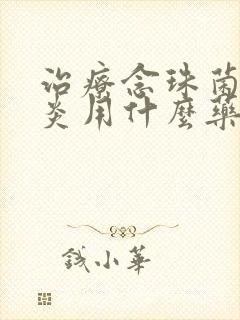 治療念珠菌
炎用什麼藥
錢小華